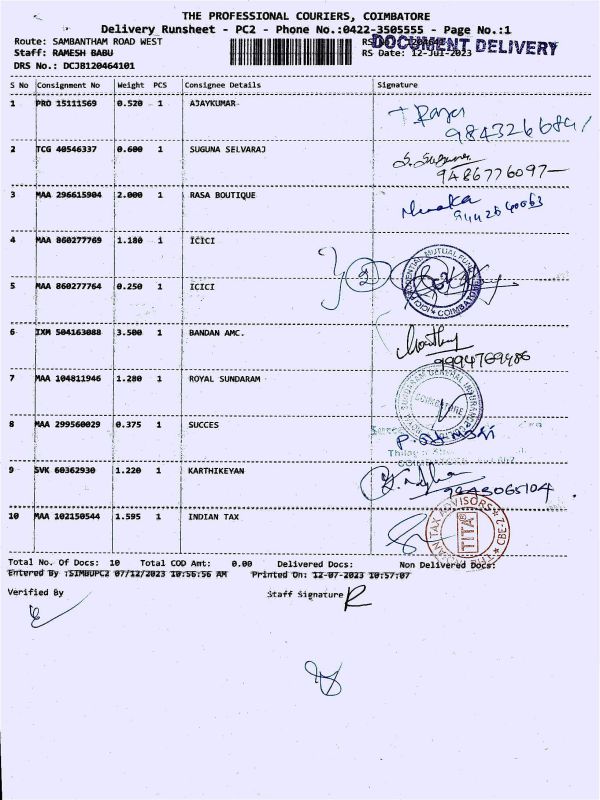 THE PROFESSIONAL COURIERS, COIMBATORE
Delivery Runsheet - PC2 - Phone No.:0422-3505555 - Page No.:1
Route: SAMBANTHAM ROAD WEST
DOCUMENT DELIVERY
Staff: RAMESH BABU RS Date: 12-Jul-2023
DRS No.: DCJB120464101
S No Consignment No Weight PCS Consignee Details Signature
1 PRO 15111569 0.520 1 AJAYKUMAR
2 TCG 40546337 0.600 1 SUGUNA SELVARAJ
9486776097
3 MAA 296615904 2.000 1 RASA BOUTIQUE
4 MAA 860277769 1.180 1 ICICI
5 MAA 860277764 0.250 1 ICICI
6 IXM 504163088 3.500 1 BANDAN AMC.
9994769486
7 MAA 104811946 1.280 1 ROYAL SUNDARAM
8 MAA 299560029 0.375 1 SUCCES
9 SVK 60362930 1.220 1 KARTHIKEYAN
10 MAA 102150544 1.595 1 INDIAN TAX
TAX ADVISORS * CBE-2
TITA
Total No. Of Docs: 10 Total COD Amt: 0.00 Delivered Docs: Non Delivered Docs:
Entered By :SIMBUPC2 07/12/2023 10:56:56 AM Printed On: 12-07-2023 10:57:07
Verified By Staff Signature